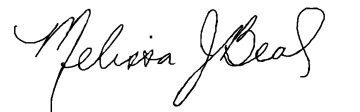 Melissa J Beal